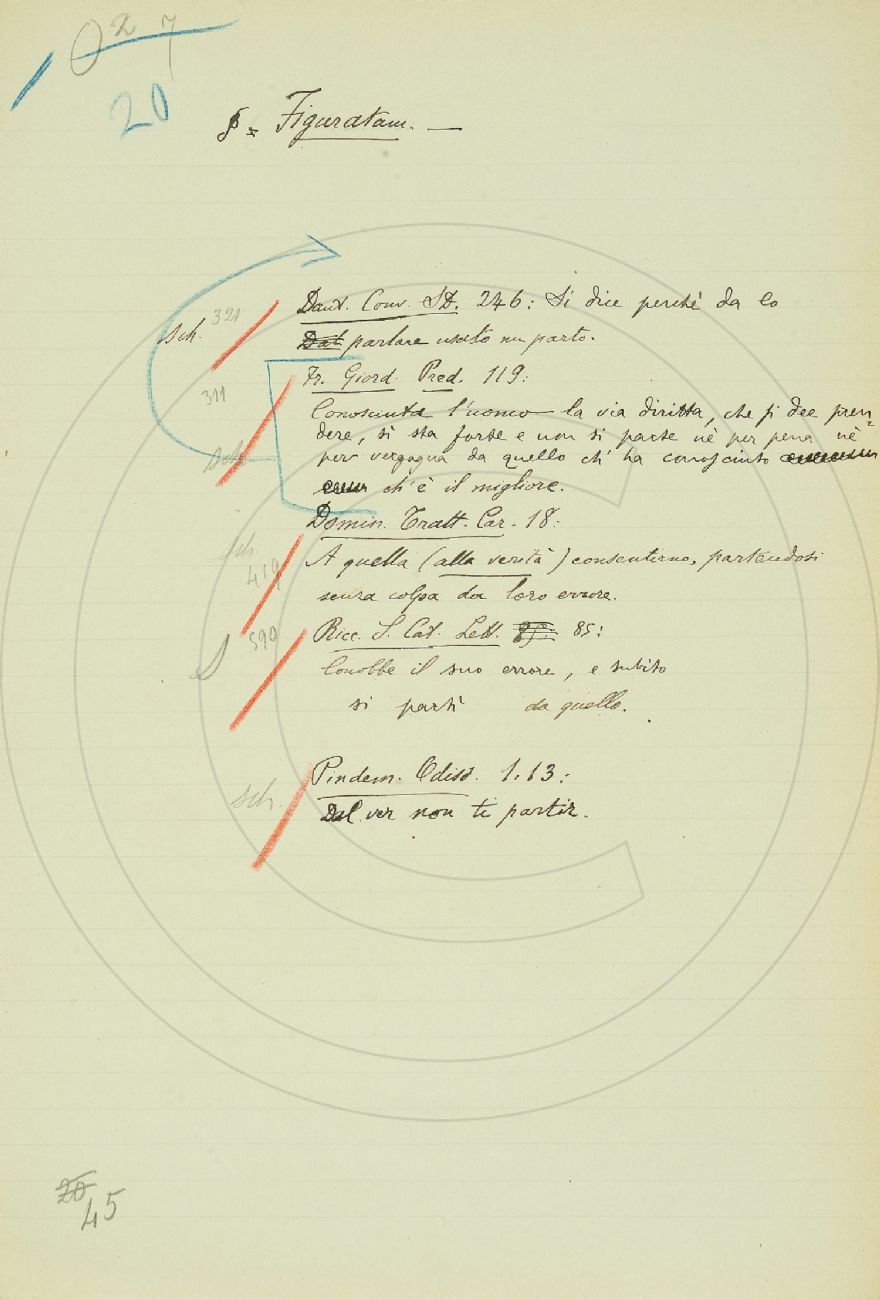 27
20
§ = Figuratam. —
Dant. Conv. SD. 246: Si dice perchè da lo
Sch. 321
Dal parlare usato mi parto.
Fr. Giord. Pred. 119:
311
Conosciuta l'uomo la via diritta, che si dee pren=
dere, si sta forte e non si parte nè per pena nè
per vergogna da quello ch' ha conosciuto
ch'è il migliore.
Domin. Tratt. Car. 18:
Sch. 419
A quella (alla verità) consentirno, partendosi
senza colpa da loro errore.
S 590
Ricc. S. Cat. Lett. 85:
Conobbe il suo errore, e subito
si partì da quello.
Pindem. Odiss. 1.13:
Sch.
Dal ver non ti partir.
20
45